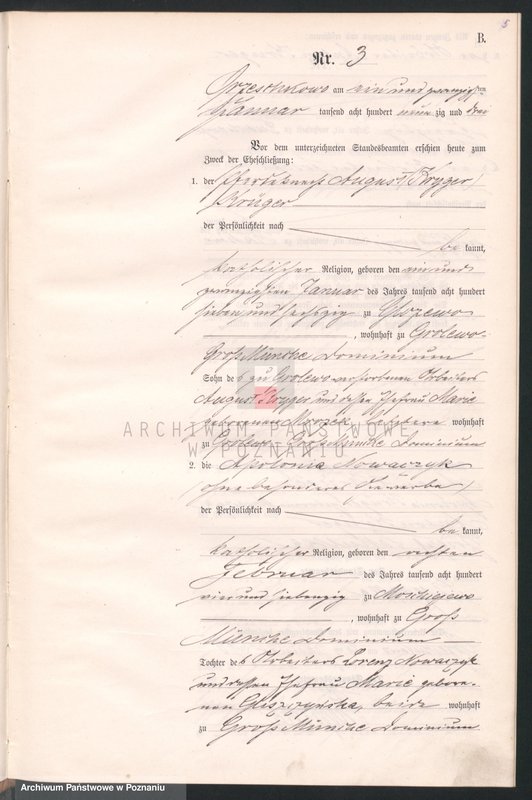 5
B.
Nr. 3
Orzeschkowo am ein und zwanzigsten
Januar tausend acht hundert neunzig und drei
Vor dem unterzeichneten Standesbeamten erschien heute zum
Zweck der Eheschließung:
1. der Pferdeknecht August (Kryger)
Krüger
der Persönlichkeit nach
bekannt,
katholischer Religion, geboren den ein und
zwanzigsten Januar des Jahres tausend acht hundert
sieben und sechszig zu
, wohnhaft zu Grolewo
Groß Münche Dominium
Sohn des zu Grolewo verstorbenen Arbeiters
August Kryger und dessen Ehefrau Marie
geborenen letztere wohnhaft
zu Grolewo Groß Münche Dominium
2. die Apolonia Nowaczyk
ohne besonderes Gewerbe
der Persönlichkeit nach
bekannt,
katholischer Religion, geboren den
Februar des Jahres tausend acht hundert
vier und siebenzig zu
, wohnhaft zu Groß
Münche Dominium
Tochter des Arbeiters Lorenz Nowaczyk
und dessen Ehefrau Marie gebore-
nen beide wohnhaft
zu Groß Münche Dominium
ARCHIWUM PAŃSTWOWE
W POZNANIU
Archiwum Państwowe w Poznaniu